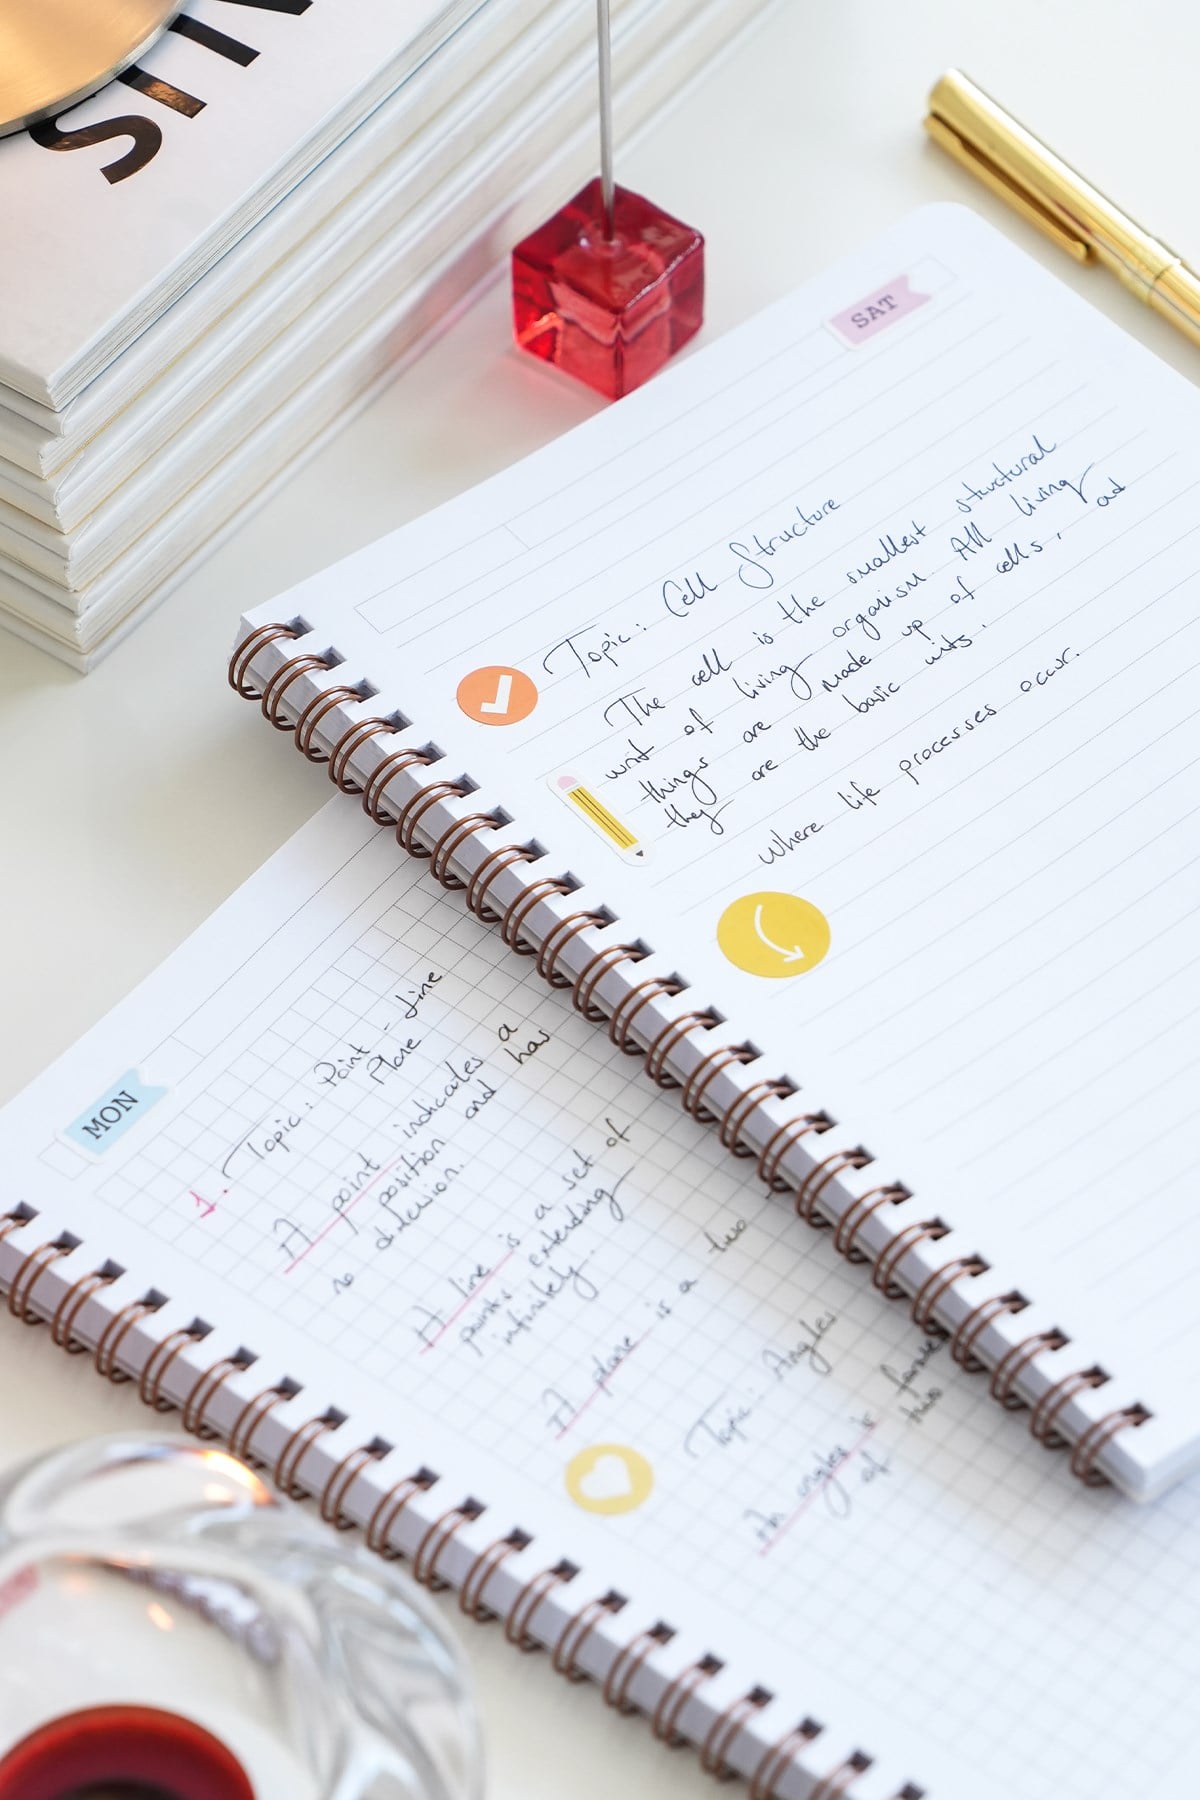 SAT
Topic: Cell Structure
The cell is the smallest structural
unit of living organism. All living
things are made up of cells, and
they are the basic units.
Where life processes occur.
MON
1. Topic: Point - Line
Plane
A point indicates a
position and has
no dimension.
A line is a set of
points extending
infinitely.
A plane is a two
Topic: Angles
An angles is formed
of two